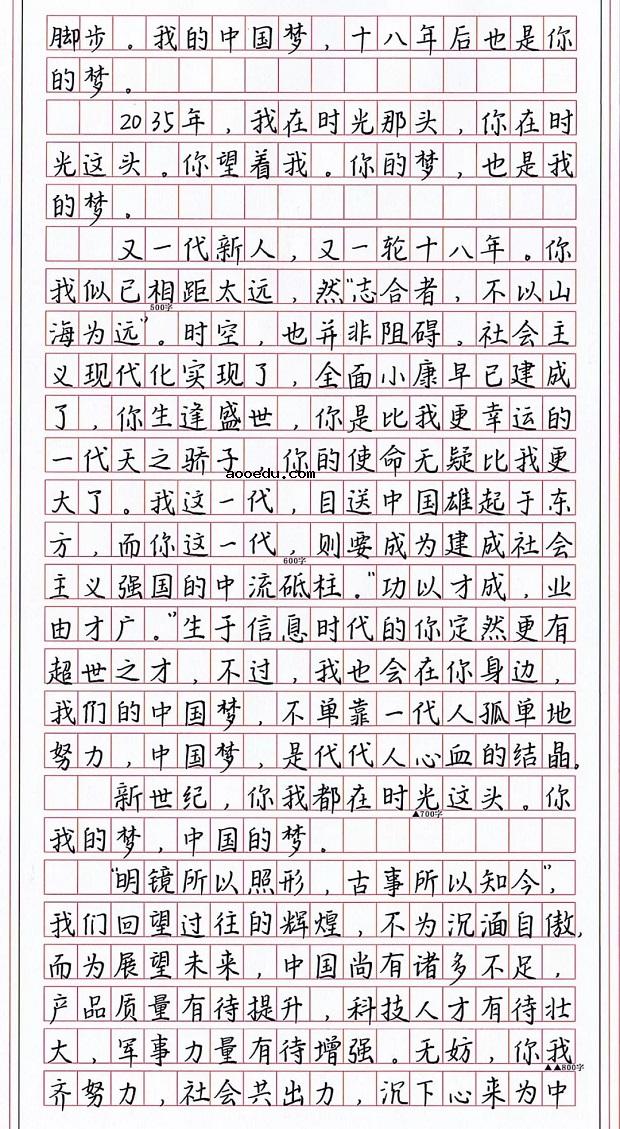 脚步。我的中国梦，十八年后也是你
的梦。
2035年，我在时光那头，你在时
光这头。你望着我。你的梦，也是我
的梦。
又一代新人，又一轮十八年。你
我似已相距太远，然“志合者，不以山
500字
海为远”。时空，也并非阻碍。社会主
义现代化实现了，全面小康早已建成
了，你生逢盛世，你是比我更幸运的
一代天之骄子，你的使命无疑比我更
aooedu.com
大了。我这一代，目送中国雄起于东
方，而你这一代，则要成为建成社会
600字
主义强国的中流砥柱。“功以才成，业
由才广。”生于信息时代的你定然更有
超世之才，不过，我也会在你身边，
我们的中国梦，不单靠一代人孤单地
努力，中国梦，是代代人心血的结晶。
新世纪，你我都在时光这头。你
▲700字
我的梦，中国的梦。
“明镜所以照形，古事所以知今”，
我们回望过往的辉煌，不为沉湎自傲，
而为展望未来，中国尚有诸多不足，
产品质量有待提升，科技人才有待壮
大，军事力量有待增强。无妨，你我
▲▲800字
齐努力，社会共出力，沉下心来为中